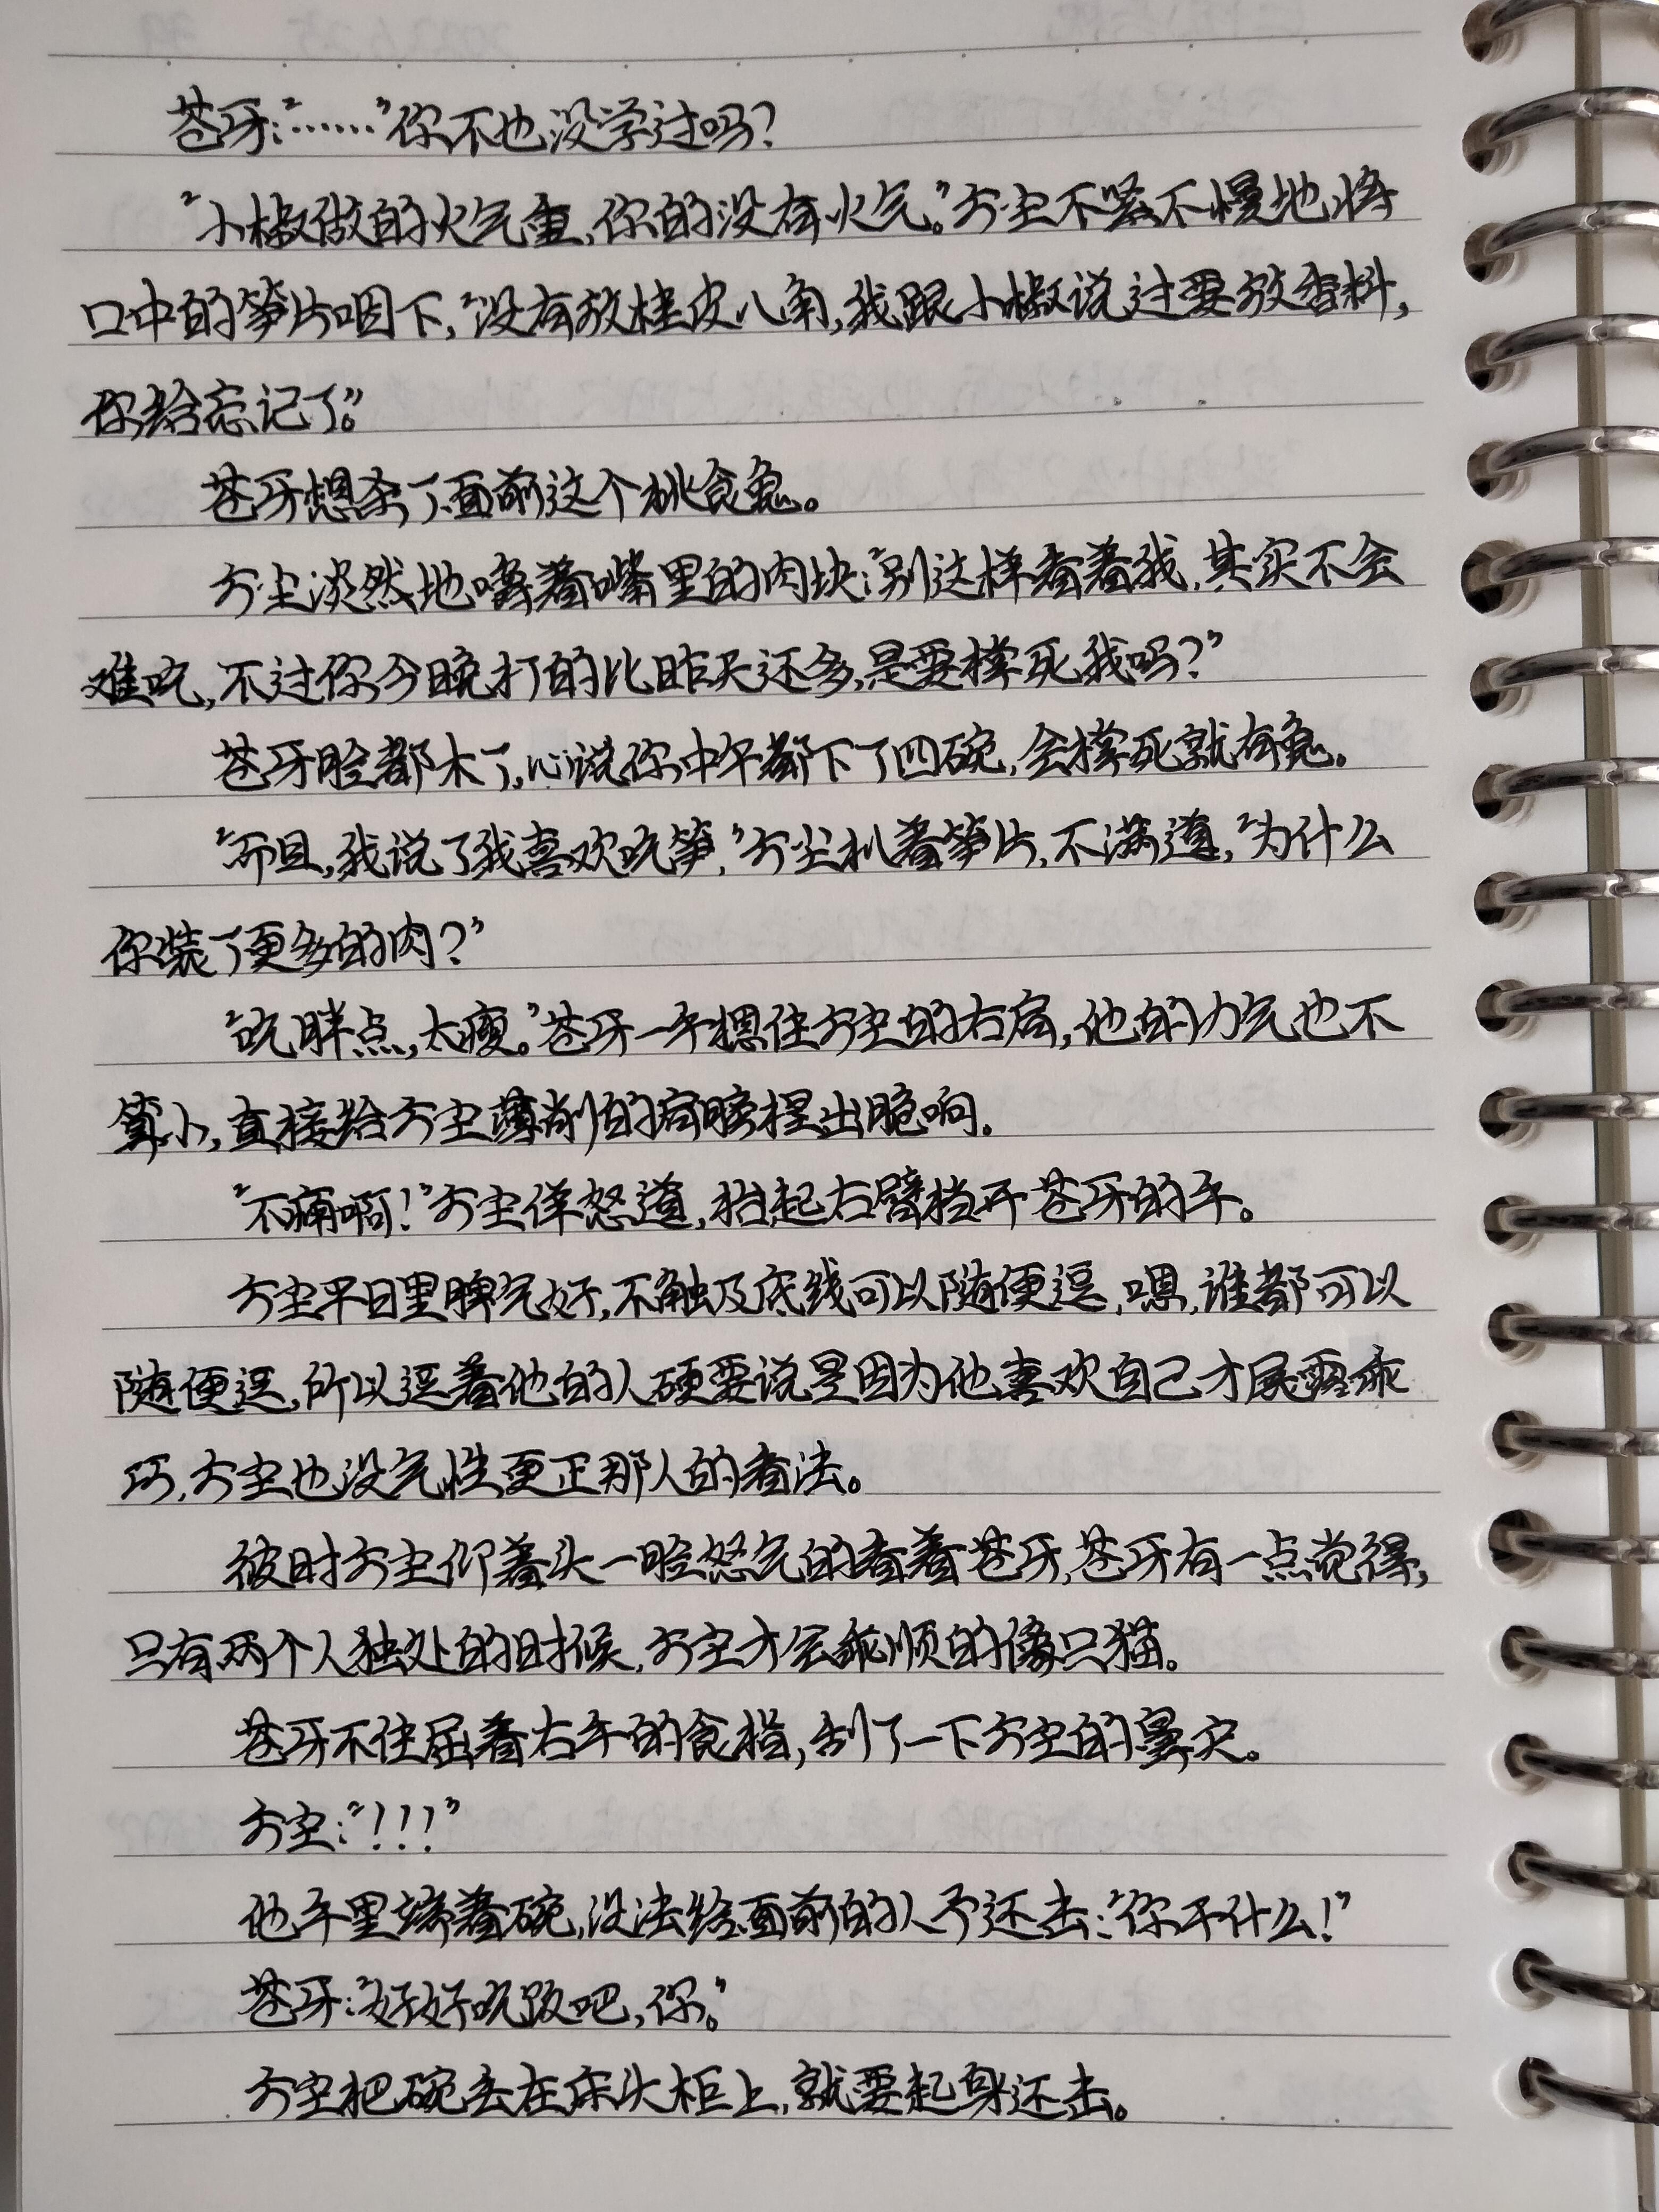 苍牙：“……”你不也没学过吗？
“小椒做的火气重，你的没有火气。”方尘不紧不慢地将
口中的笋片咽下，“没有放桂皮八角，我跟小椒说过要放香料，
你给忘记了。”
苍牙想杀了面前这个挑食鬼。
方尘淡然地嚼着嘴里的肉块：“别这样看着我，其实不会
难吃，不过你今晚打的比昨天还多，是要撑死我吗？”
苍牙脸都木了，心说你中午都下了四碗，会撑死就有鬼。
“而且，我说了我喜欢吃笋，”方尘扒着笋片，不满道，“为什么
你装了更多的肉？”
“吃胖点，太瘦。”苍牙一手摁住方尘的右肩，他的力气也不
算小，直接给方尘薄削的肩膀捏出脆响。
“不痛啊！”方尘佯怒道，抬起右臂挡开苍牙的手。
方尘平日里脾气好，不触及底线可以随便逗，嗯，谁都可以
随便逗，所以逗着他的人硬要说是因为他喜欢自己才展露乖
巧，方尘也没气性更正那人的看法。
彼时方尘仰着头一脸怒气的看着苍牙，苍牙有一点觉得，
只有两个人独处的时候，方尘才会乖顺的像只猫。
苍牙不住屈着右手的食指，刮了一下方尘的鼻尖。
方尘：“！！！”
他手里端着碗，没法给面前的人予还击：“你干什么！”
苍牙：“好好吃饭吧，你。”
方尘把碗丢在床头柜上，就要起身还击。